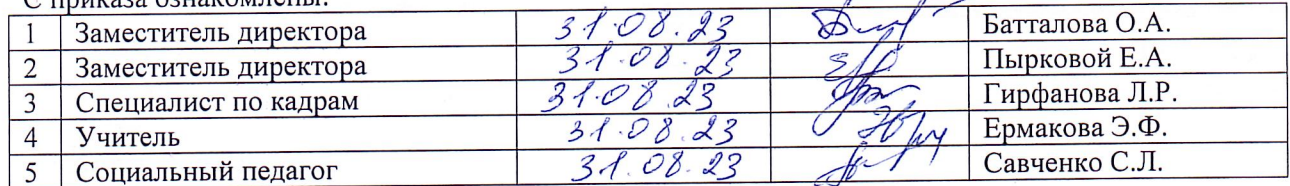 С приказа ознакомлены:
1 Заместитель директора 31.08.23 Батталова О.А.
2 Заместитель директора 31.08.23 Пырковой Е.А.
3 Специалист по кадрам 31.08.23 Гирфанова Л.Р.
4 Учитель 31.08.23 Ермакова Э.Ф.
5 Социальный педагог 31.08.23 Савченко С.Л.